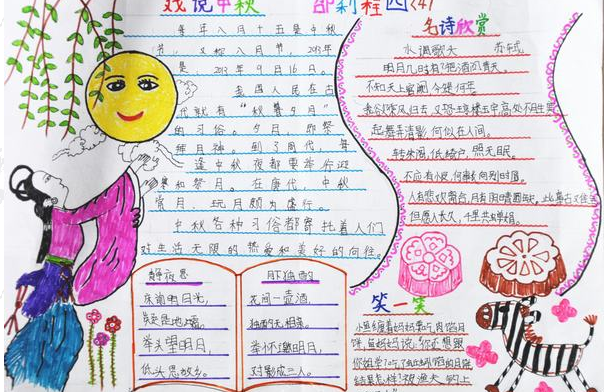 戏说中秋 邵莉程 四(4)
每年八月十五是中秋
节，又称八月节，2013年
是 2013年9月16日。
我国人民在古
代就有“秋暮夕月”
的习俗。夕月，即祭
拜月神。到了周代，每
逢中秋夜都要举行迎
寒和祭月。在唐代，中秋
赏月、玩月颇为盛行。
中秋各种习俗都寄托着人们
对生活无限的热爱和美好的向往。
静夜思
床前明月光，
疑是地上霜。
举头望明月，
低头思故乡。
月下独酌
花间一壶酒，
独酌无相亲。
举杯邀明月，
对影成三人。
名诗欣赏
水调歌头 苏轼
明月几时有?把酒问青天。
不知天上宫阙，今夕是何年
我欲乘风归去，又恐琼楼玉宇，高处不胜寒
起舞弄清影，何似在人间。
转朱阁，低绮户，照无眠。
不应有恨，何事长向别时圆。
人有悲欢离合，月有阴晴圆缺，此事古难全
但愿人长久，千里共婵娟。
笑一笑
小鱼缠着妈妈要吃
饼，鱼妈妈说：你还想跟